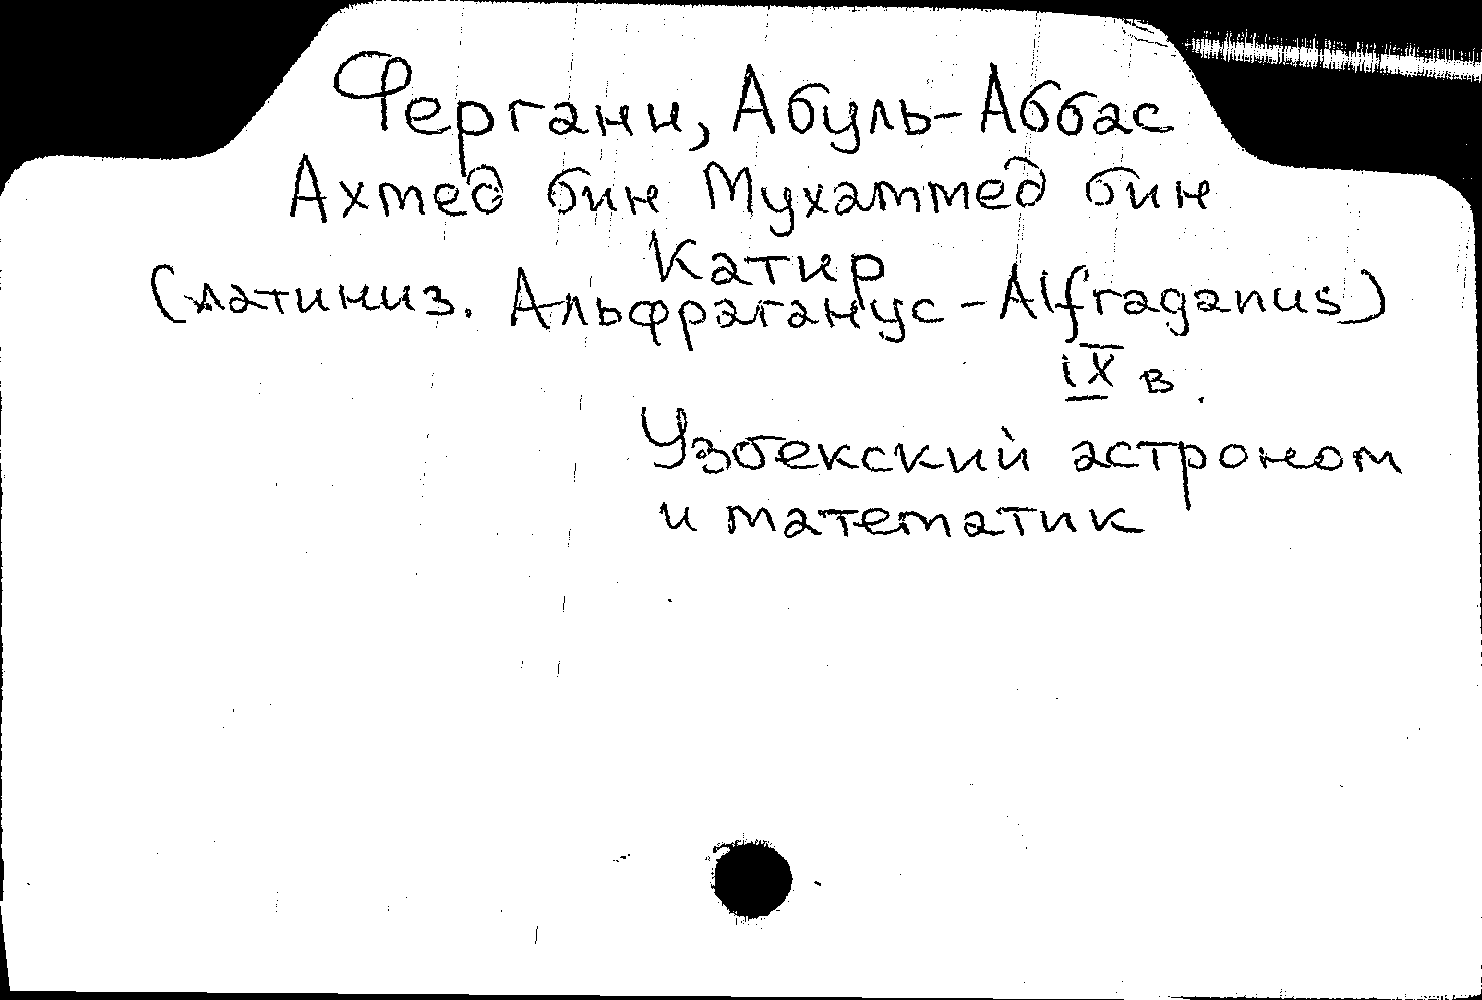 Фергани, Абуль-Аббас
Ахмед бин Мухаммед бин
Катир
(латиниз. Альфраганус - Alfraganus)
IX в.
Узбекский астроном
и математик